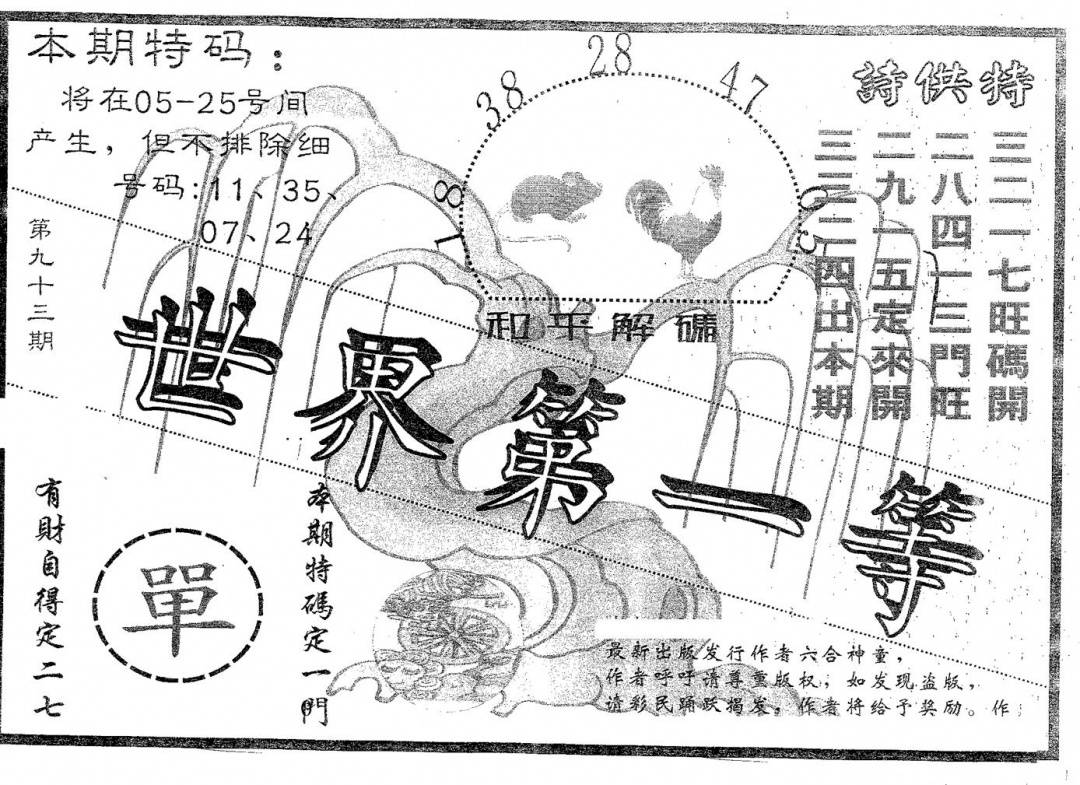 本期特码：
将在05-25号间
产生，但不排除细
号码:11、35、
07、24
第九十三期
18
38
28
47
05
和平解碼
特供詩
三二一七旺碼開
二八四一三門旺
二九一五定來開
三三二四出本期
世界第一等
有財自得定二七
單
本期特碼定一門
最新出版发行作者六合神童，
作者呼吁请尊重版权，如发现盗版，
请彩民踊跃揭发，作者将给予奖励。作